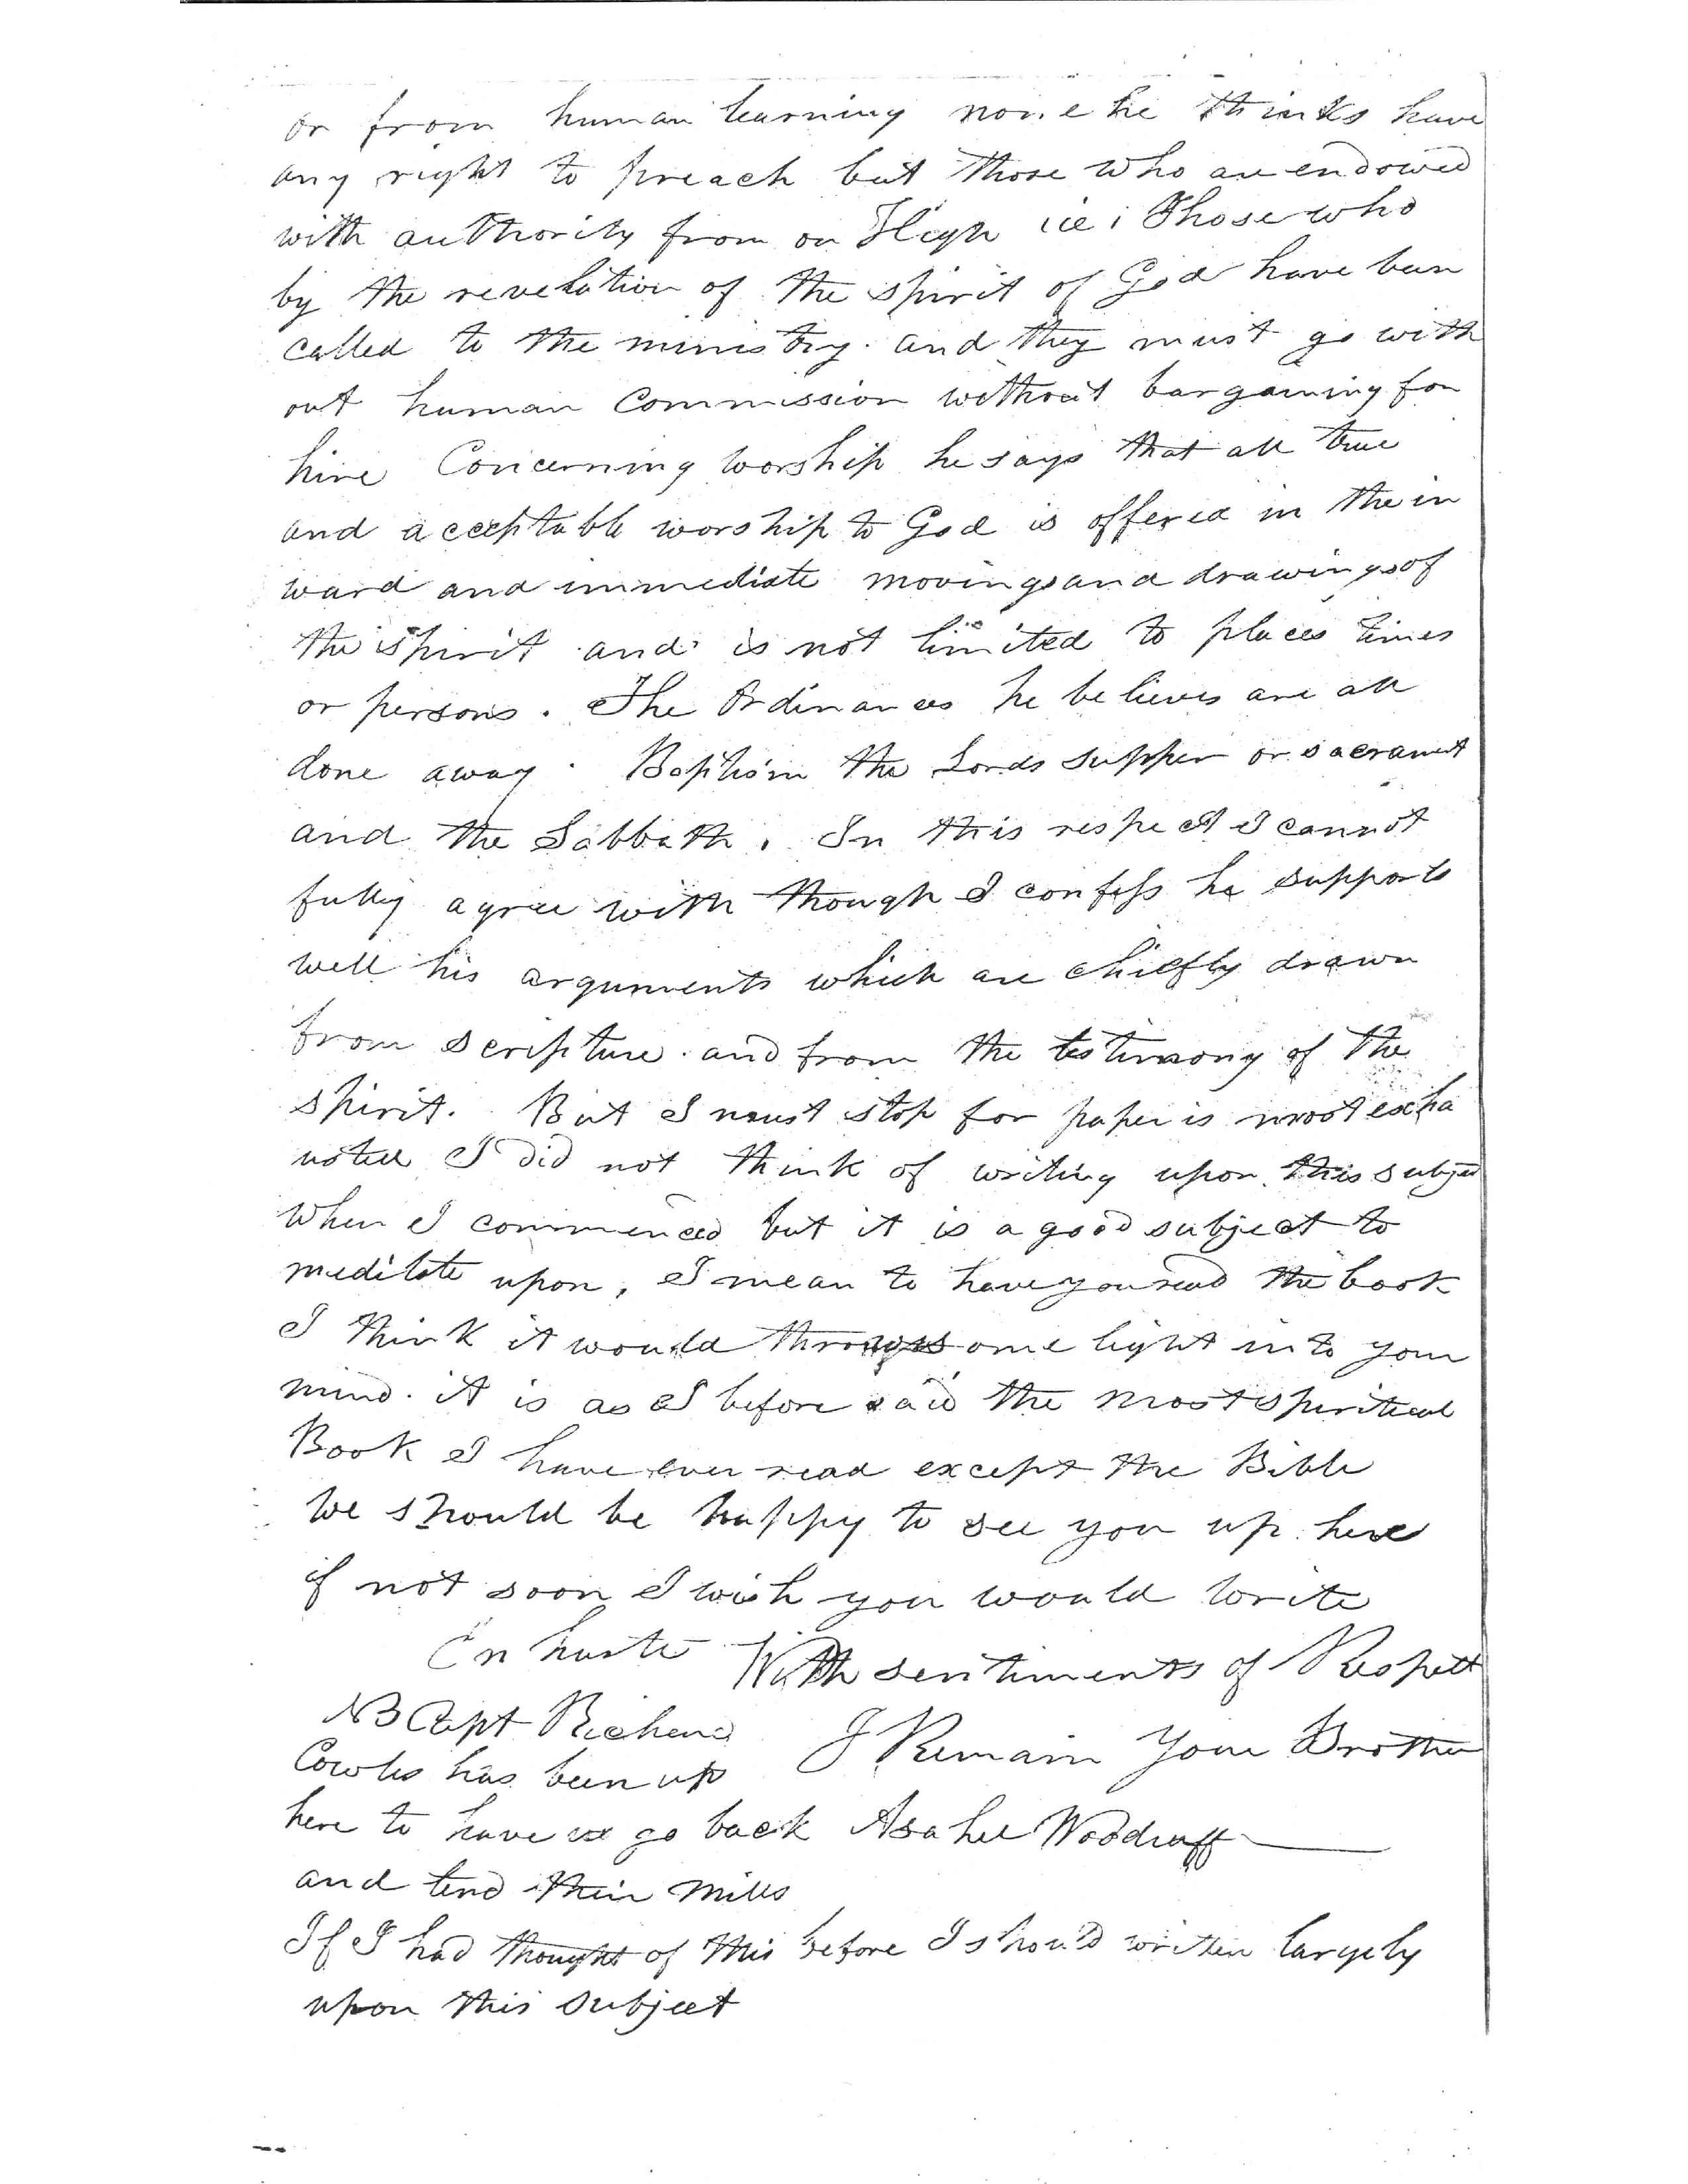 or from human learning none he thinks have
any right to preach but those who are endowed
with authority from on High ie; Those who
by the revelation of the spirit of God have been
called to the ministry. and they must go with
out human Commission without bargaining for
hire Concerning worship he says that all true
and acceptable worship to God is offered in the in
ward and immediate movings and drawings of
the spirit and is not limited to places times
or persons. The Ordinances he believes are all
done away. Baptism the Lords supper or sacrament
and the Sabbath. In this respect I cannot
fully agree with though I confess he supports
well his arguments which are chiefly drawn
from scripture. and from the testimony of the
spirit. But I must stop for paper is most exha
usted I did not think of writing upon this subject
when I commenced but it is a good subject to
meditate upon, I mean to have you read the book
I think it would throw some light into your
mind. it is as I before said the most spiritual
Book I have ever read except the Bible
We should be happy to see you up here
if not soon I wish you would write
In haste With sentiments of Respett
NB Capt Richard
I Remain Your Brother
Cowles has been up
here to have us go back Asahel Woodruff
and tend their mills
If I had thought of this before I should written largely
upon this subject